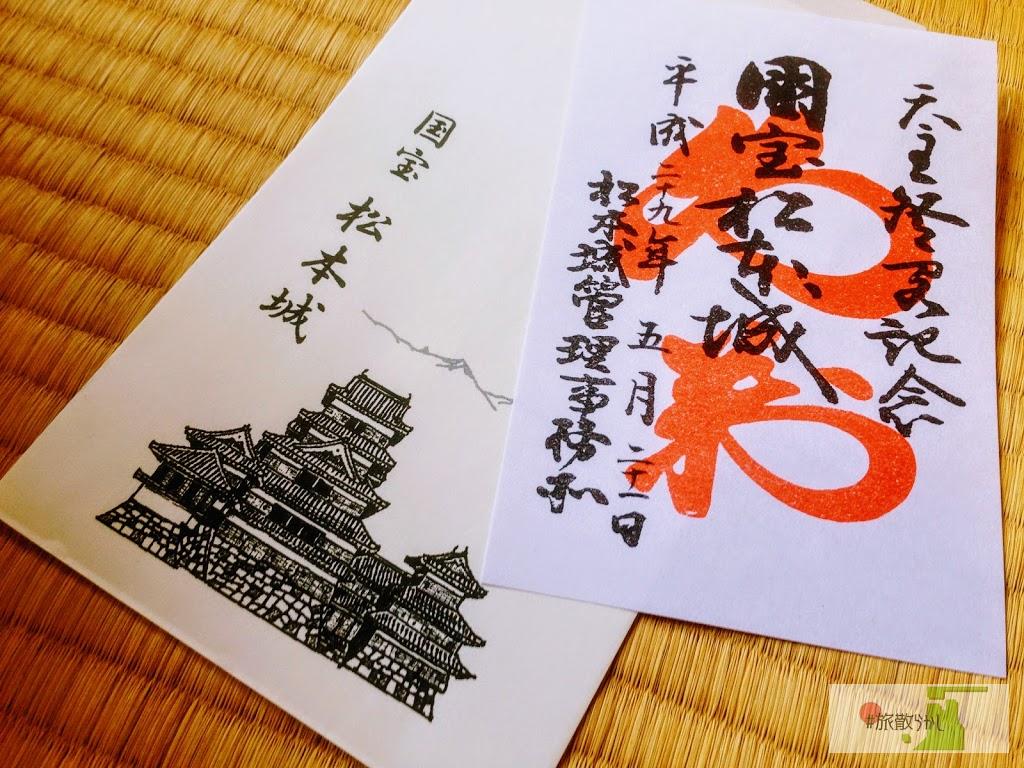 国宝 松本城
天主登閣記念
國宝松本城
平成二十九年 五月二十一日
松本城管理事務所
#旅散らかし